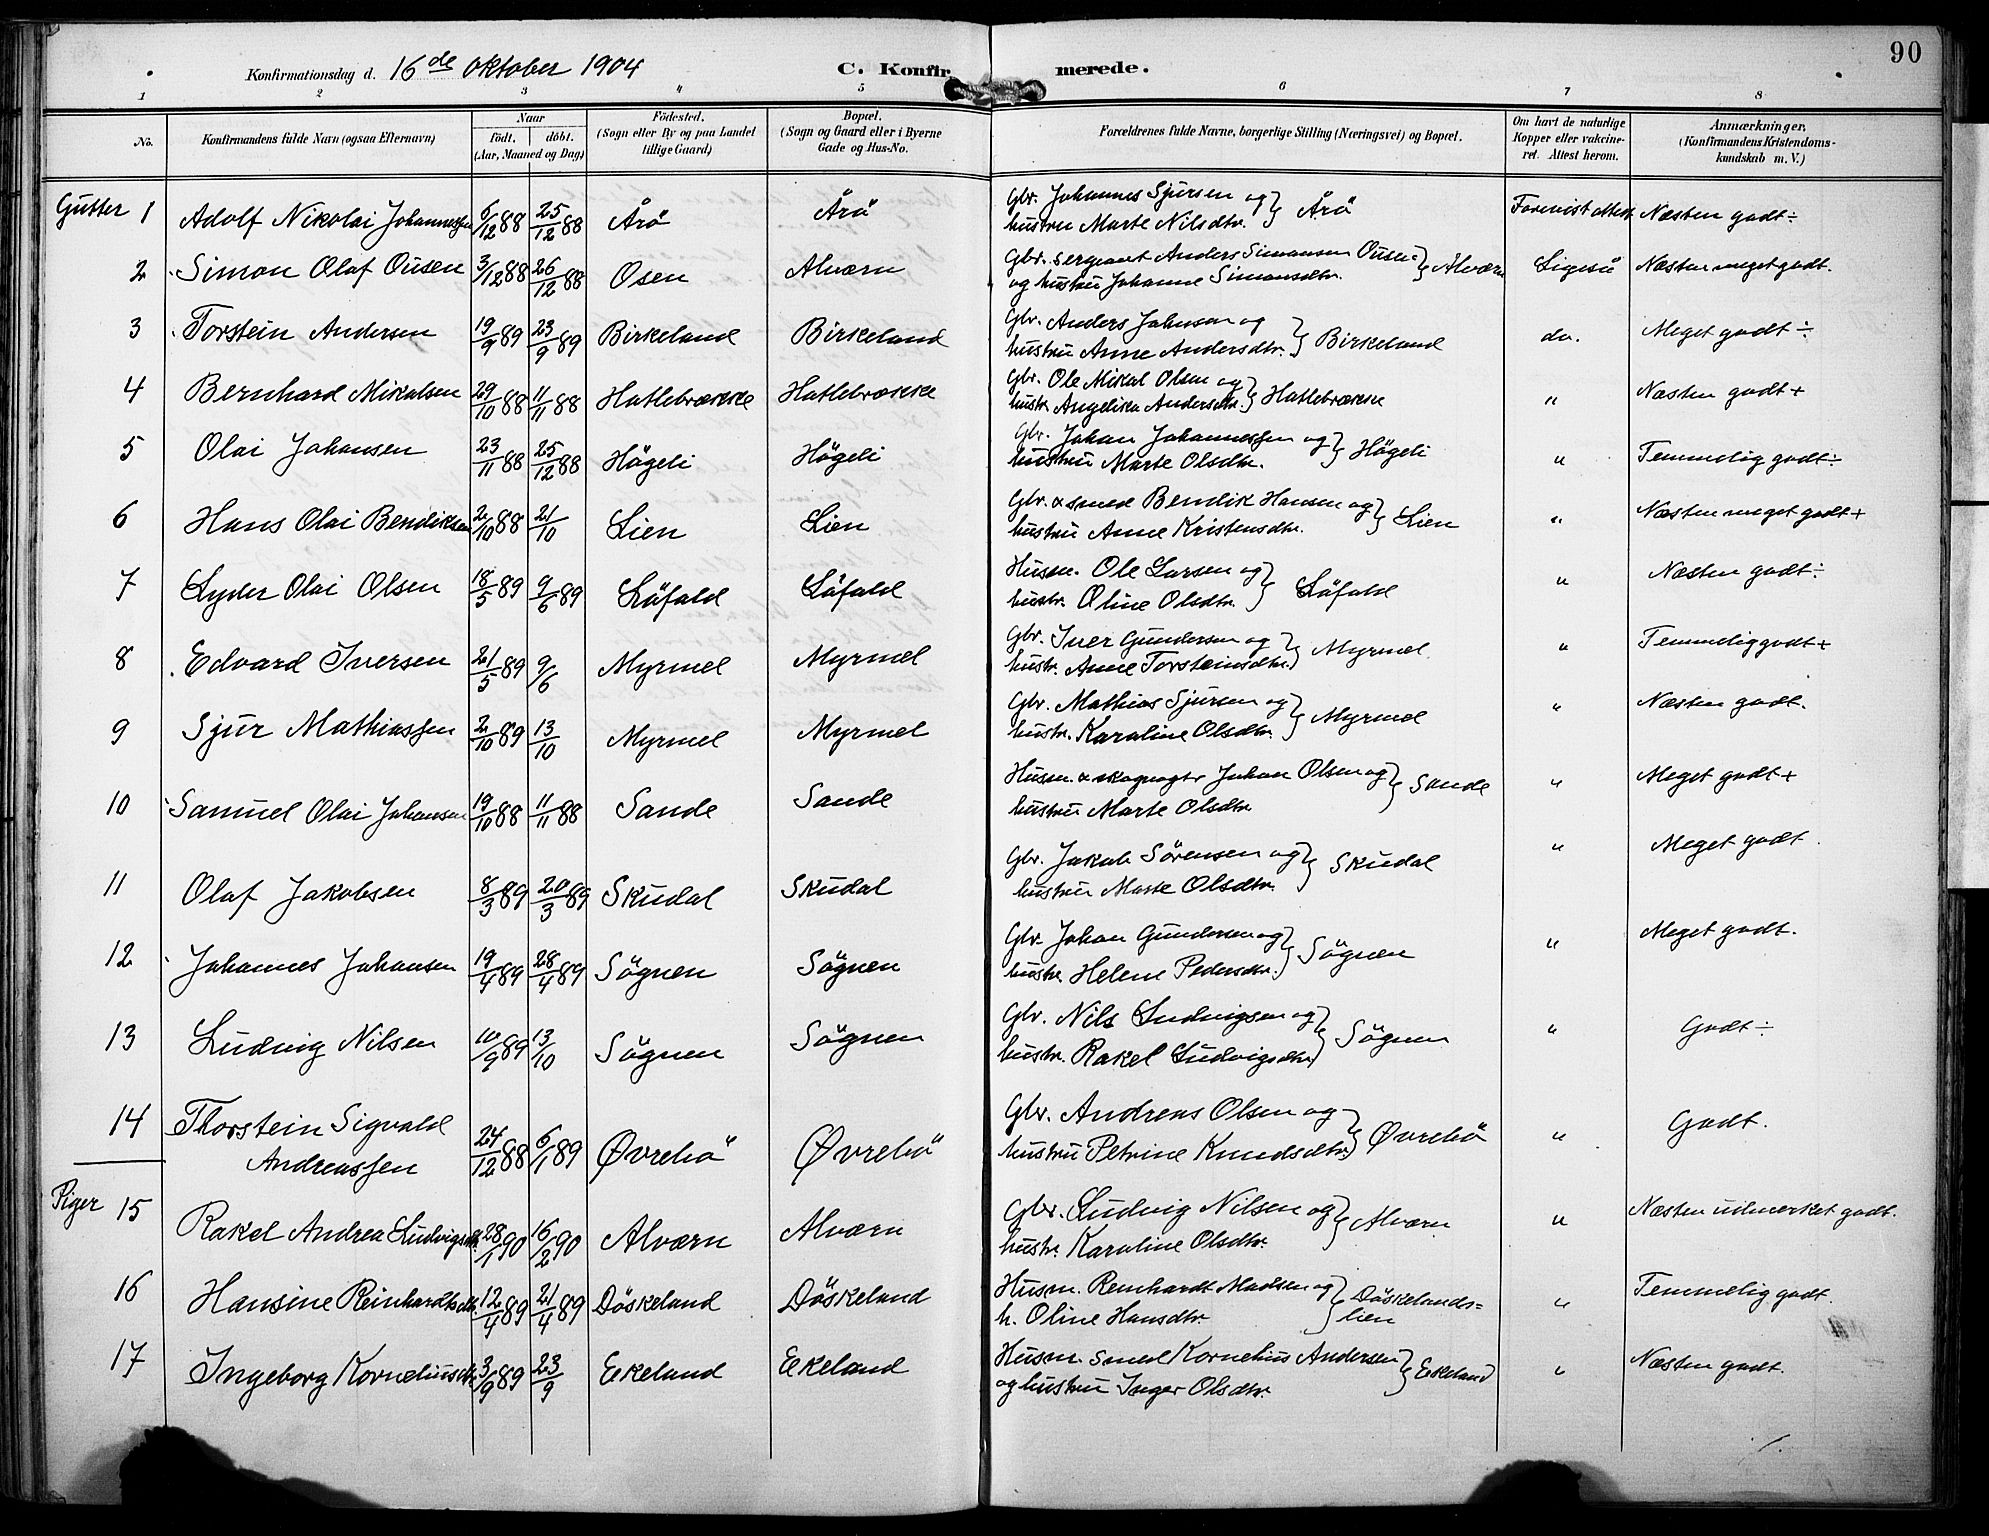 90
Konfirmationsdag d. 16de Oktober 1904 C. Konfirmerede.
1 2 3 4 5 6 7 8
No. Konfirmandens fulde Navn (ogsaa Efternavn) Naar født, døbt. (Aar, Maaned og Dag) Fødested. (Sogn eller By og paa Landet tillige Gaard) Bopæl. (Sogn og Gaard eller i Byerne Gade og Hus-No. Forældrenes fulde Navne, borgerlige Stilling (Næringsvei) og Bopæl. Om havt de naturlige Kopper eller vakcineret. Attest herom. Anmærkninger, (Konfirmandens Kristendomskundskab m. V.)
Gutter 1 Adolf Nikolai Johannessen 6/12 88 25/12 88 Årö Årö Gbr. Johannes Sjursen og hustru Marte Nilsdtr. } Årö Forevist attest Næsten godt ÷
2 Simon Olaf Ousen 3/12 88 26/12 88 Osen Alværn Gbr. sergeant Anders Simonsen Ousen og hustru Johanne Simonsdtr. } Alværn Ligeså Næsten meget godt.
3 Torstein Andersen 19/9 89 23/9 89 Birkeland Birkeland Gbr. Anders Johnson og hustru Anne Andersdtr. } Birkeland do. Meget godt ÷
4 Bernhard Mikalsen 29/10 88 11/11 88 Hatlebrække Hatlebrække Gbr. Ole Mikal Olsen og hustr. Angelika Andersdtr. } Hatlebrække " Næsten godt +
5 Olai Johansen 23/11 88 25/12 88 Högeli Högeli Gbr. Johan Johannessen og hustru Marte Olsdtr. } Högeli " Temmelig godt ÷
6 Hans Olai Bendiksen 2/10 88 21/10 Lien Lien Gbr. & smed Bendik Hansen og hustru Anne Kristensdtr. } Lien " Næsten meget godt +
7 Lyder Olai Olsen 18/5 89 9/6 89 Löfald Löfald Husm. Ole Larsen og hustr. Oline Olsdtr. } Löfald " Næsten godt ÷
8 Edvard Iversen 21/5 89 9/6 Myrmel Myrmel Gbr. Iver Gundersen og hustr. Anne Torsteinsdtr. } Myrmel " Temmelig godt +
9 Sjur Mathiassen 2/10 89 13/10 Myrmel Myrmel Gbr. Mathias Sjursen og hustr. Karoline Olsdtr. } Myrmel " Næsten godt.
10 Samuel Olai Johansen 19/10 88 11/11 88 Sande Sande Husm. & skogvogter Johan Olsen og hustru Marte Olsdtr } Sande " Meget godt +
11 Olaf Jakobsen 8/3 89 20/3 89 Skudal Skudal Gbr. Jakob Sörensen og hustru Marte Olsdtr. } Skudal " Meget godt.
12 Johannes Johansen 19/4 89 28/4 89 Sögnen Sögnen Gbr. Johan Gundersen og hustr. Helene Pedersdtr. } Sögnen " Meget godt.
13 Ludvig Nilsen 10/9 89 13/10 Sögnen Sögnen Gbr. Nils Ludvigsen og hustr. Rakel Ludvigsdtr } Sögnen " Godt ÷
14 Thorstein Sigvald Andreassen 24/12 88 6/1 89 Øvrebö Øvrebö Gbr. Andreas Olsen og hustru Petrine Knudsdtr. } Øvrebö " Godt.
Piger 15 Rakel Andrea Ludvigsdtr. 28/1 90 16/2 90 Alværn Alværn Gbr. Ludvig Nilsen og hustr. Karoline Olsdtr. } Alværn " Næsten udmerket godt.
16 Hansine Reinhardtsdtr. 12/4 89 21/4 89 Döskeland Döskeland Husm. Reinhardt Madsen og h. Oline Hansdtr. } Döskelands=lien " Temmelig godt.
17 Ingeborg Korneliusdtr. 3/9 89 23/9 Eekeland Eekeland Husm. smed Kornelius Andersen og hustru Inger Olsdtr. } Eekeland " Næsten godt.